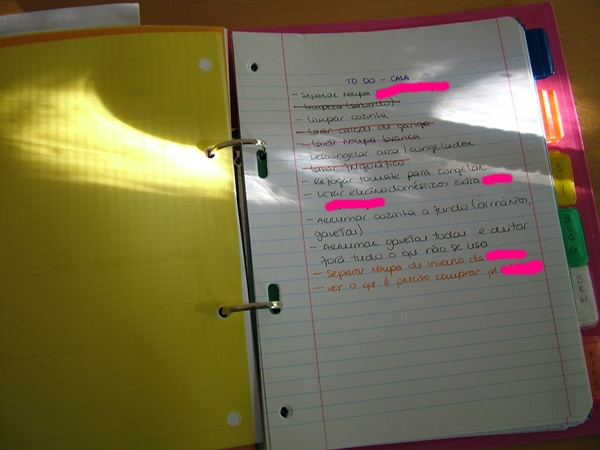 TO DO - CASA
- Separar roupa
- Limpeza (sábado)
- Limpar cozinha
- Lavar calças de ganga
- Lavar roupa branca
- Descongelar arca / congelador
- Lavar frigorífico
- Refogar tomate para congelar
- Levar electrodomésticos
- Arrumar cozinha a fundo (armários,
gavetas)
- Arrumar gavetas todas e deitar
fora tudo o que não se usa
- Separar roupa de inverno da
- ver o que é preciso comprar p/